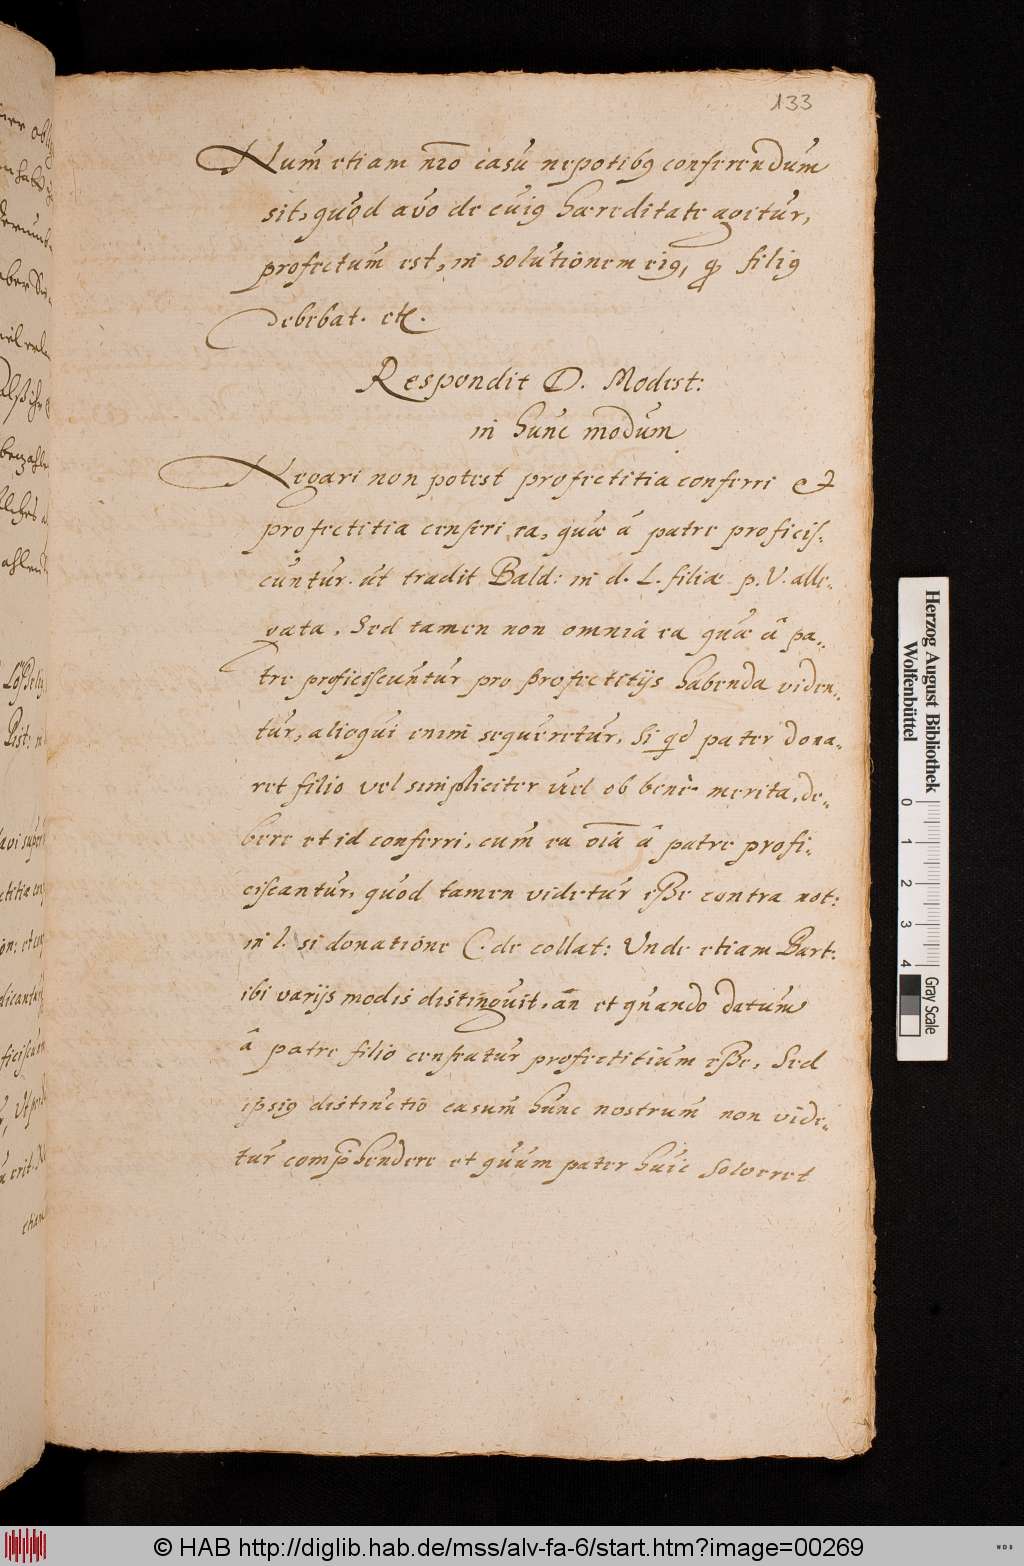 133
Num etiam nr̃o casu nepotibꝰ conferendum
sit, quod avo de cuiꝰ hæreditate agitur,
profectum est, in solutionem eiꝰ, qđ filiꝰ
debebat. etc.
Respondit D. Modest:
in hunc modum
Negari non potest profectitia conferri et
profectitia censeri ea, quæ â patre proficis-
cuntur. ut tradit Bald: in d. L. filiæ p. V. alle-
gata. Sed tamen non omnia ea quæ â pa-
tre proficiscuntur pro profectitijs habenda viden-
tur, alioqui enim sequeretur, Si qd pater dona-
ret filio vel simpliciter vel ob benè merita, de-
bere et id conferri, cum ea oĩa â patre profi-
ciscantur, quod tamen videtur eße contra not:
in l. si donatione C. de collat: Unde etiam Bart:
ibi varijs modis distinguit, an et quando datum
â patre filio censeatur profectitium eße, Sed
ipsiꝰ distinctio casum hunc nostrum non vide-
tur comp̃hendere et quum pater huic solveret
Herzog August Bibliothek
Wolfenbüttel
0 1 2 3 4
Gray Scale
© HAB http://diglib.hab.de/mss/alv-fa-6/start.htm?image=00269